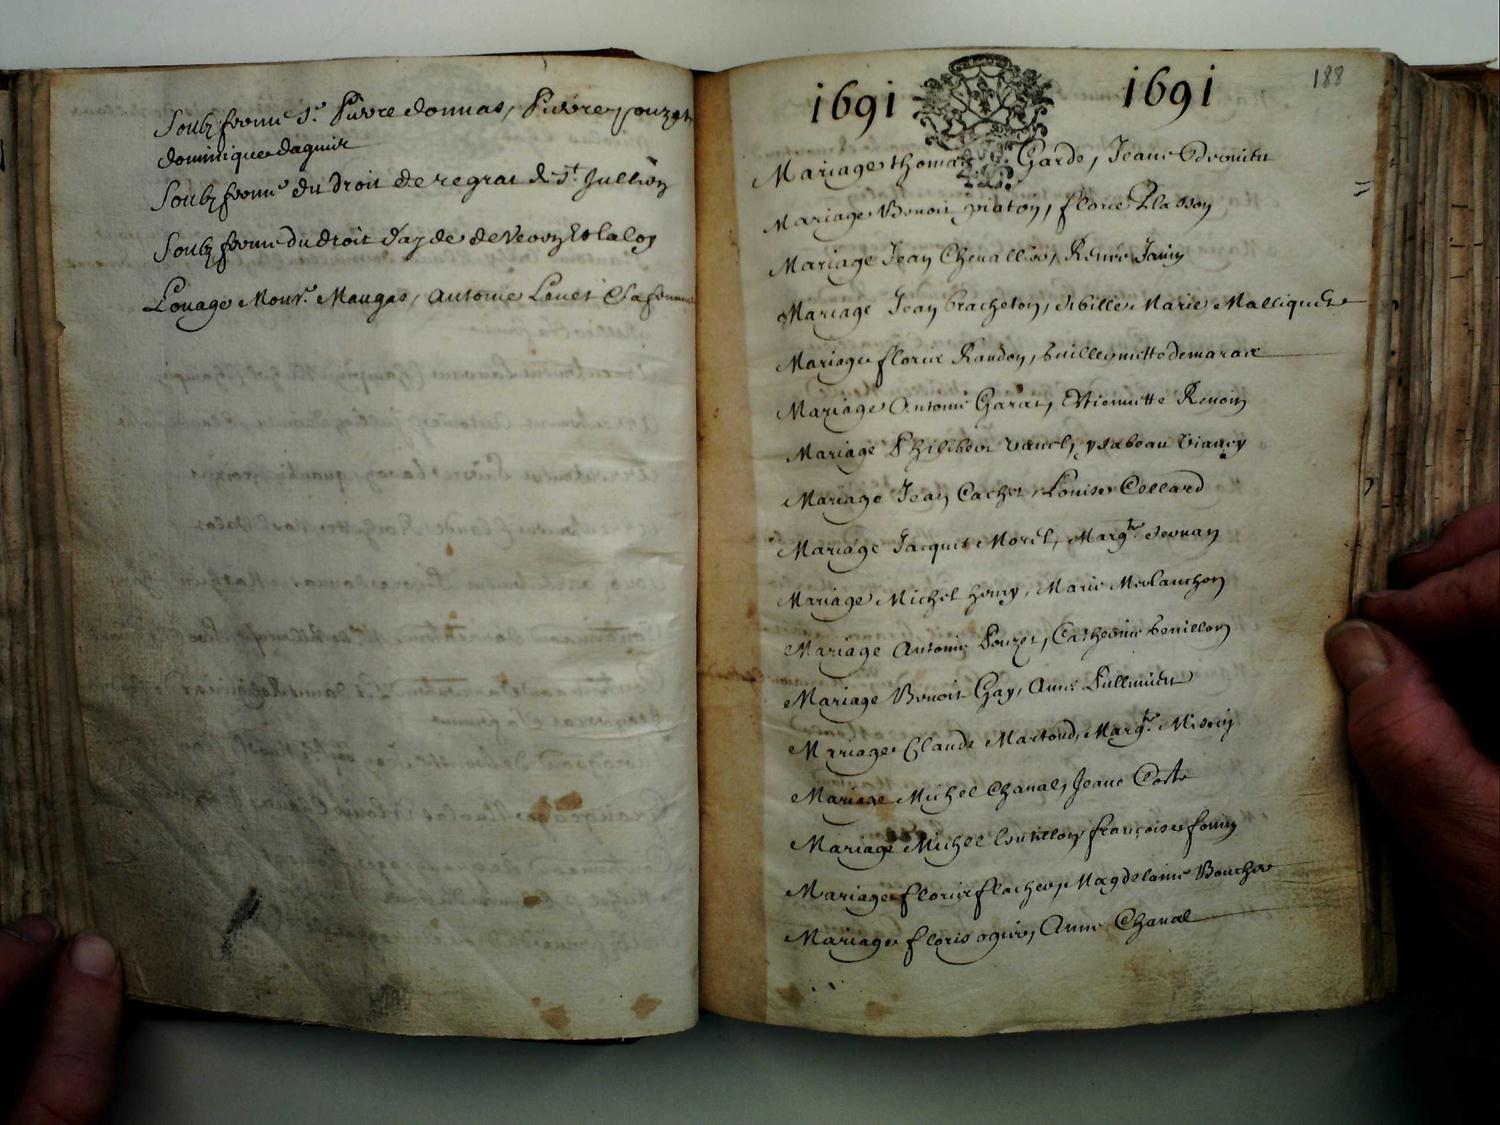 Soubz ferme Sr. Pierre donnas, Pierre pouzet
dominique dagnier
Soubz ferme du droit de regrat de St. Jullien
Soubz ferme du droit d'ayde de
Louage Monr. Maugas, Antoine Louet & sa femme
1691 1691 188
Mariage thomas Garde, Jeane
Mariage Benoit piaton, florie Plasson
Mariage Jean Chevallier, Renée Jamy
Mariage Jean Gracheton, Sibille Marie Malliquet
Mariage florie Randon, Guillemette demarae
Mariage Antoine Garat, Estiennette Renoin
Mariage Philibert vanel, ysabeau Viancy
Mariage Jean Cachet, Louise Collard
Mariage Jacques Morel, Margte. Seonan
Mariage Michel henry, Marie Merlanchon
Mariage Antoine Pouzet, Catherine bouillon
Mariage Benoit Gay, Anne
Mariage Claude Martoud, Margte.
Mariage Michel Chanal, Jeane Coste
Mariage Michel françoise
Mariage florie flacher, Magdelaine Boucher
Mariage floris ogier, Anne Chanal